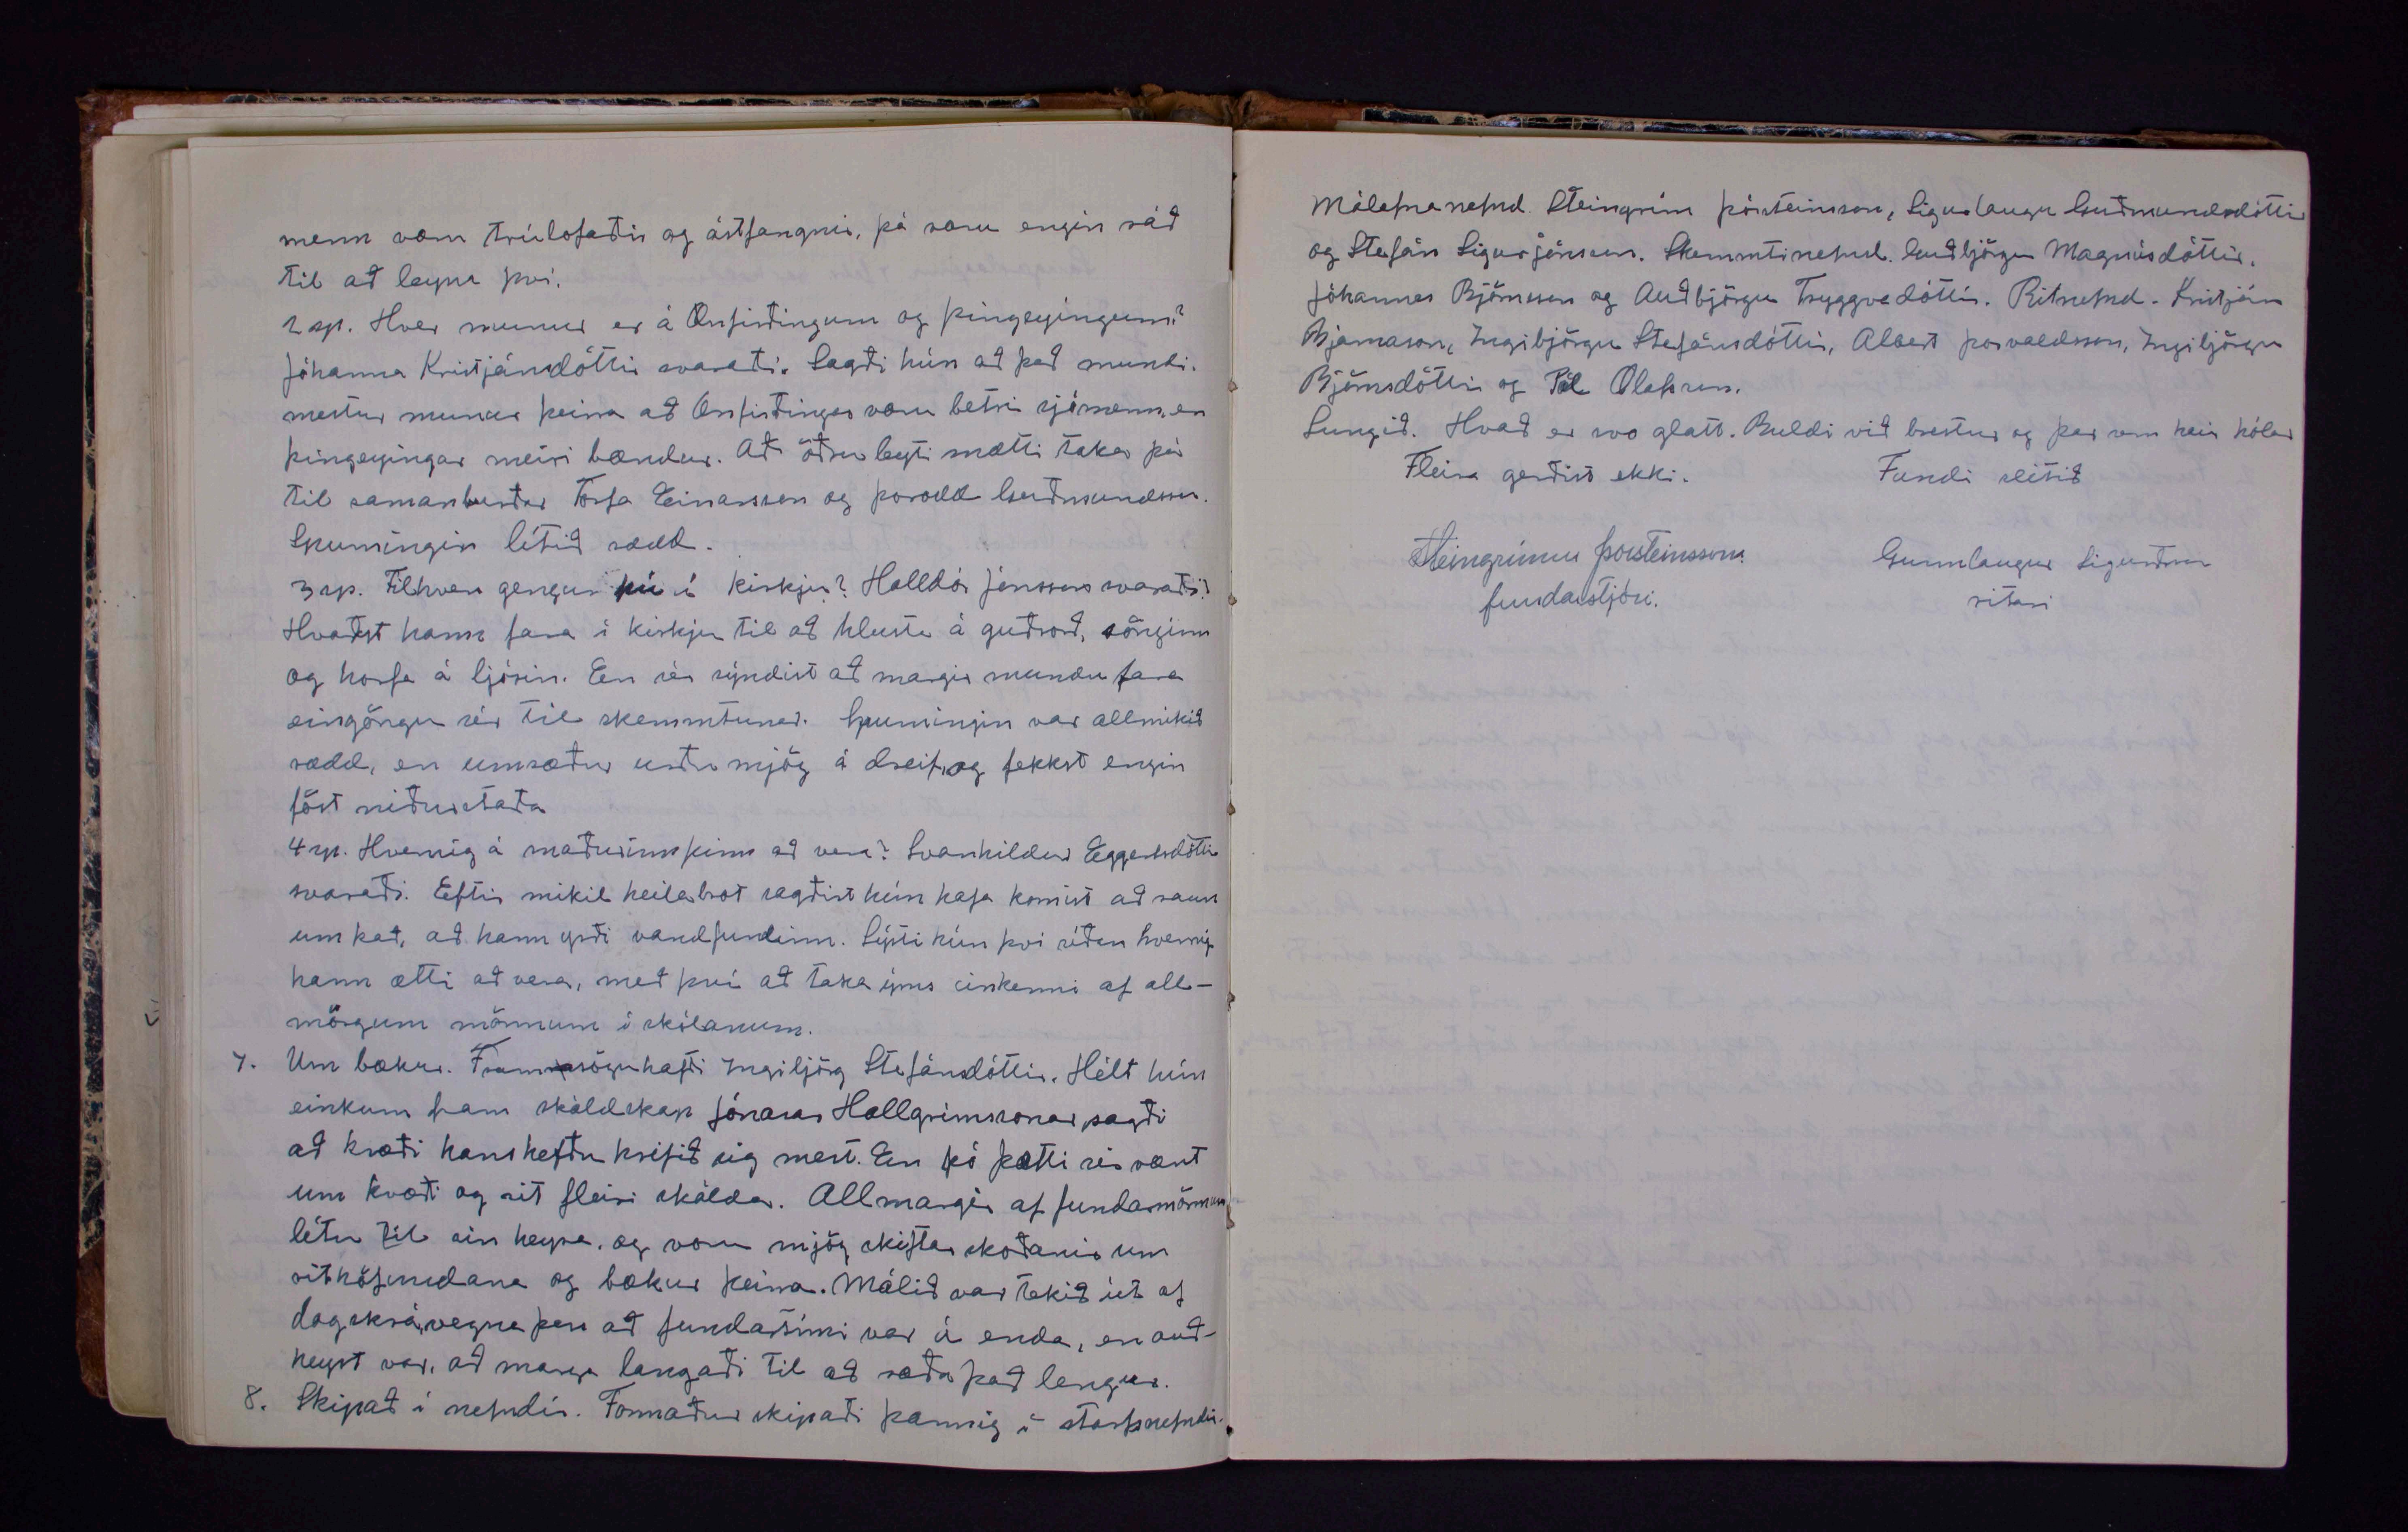 menn væru trúlofaðir og ástfangnir, þá væru engin ráð
til að leyna því.
2 sp. Hver munur er á Önfirðingum og þingeyingum?
Jóhanna Kristjánsdóttir svaraði. Sagði hún að það mundi
mestur munur þeirra að Önfirðingar væru betri sjómenn, en
þingeyingar meiri bændur. Að öðru leyti mætti taka þá
til samanburðar Torfa Einarsson og Þorodd Guðmundsson.
Spurningin lítið rædd.
3 sp. Til hvers gengur þú í kirkju? Halldór Jónsson svaraði.
Kvaðst hann fara í kirkju til að hlusta á guðsorð, sönginn
og horfa á ljósin. En sér sýndist að margir mundu fara
eingöngu sér til skemmtunar. Spurningin var allmikið
rædd, en umræður urðu mjög á dreif, og fekkst engin
föst niðurstaða
4 sp. Hvernig á maðurinn þinn að vera? Svanhildur Eggertsdóttir
svaraði. Eftir mikil heilabrot sagðist hún hafa komist að raun
um það, að hann yrði vandfundinn. Lýsti hún því síðan hvernig
hann ætti að vera, með því að taka ýms einkenni af all-
mörgum mönnum í skólanum.
7. Um bækur. Framsögu hafði Ingibjörg Stefánsdóttir. Hélt hún
einkum fram skáldskap Jónasar Hallgrímssonar, sagði
að kvæði hans hefðu hrifið sig mest. En þó þætti sér vænt
um kvæði og rit fleiri skálda. Allmargir af fundarmönnum
létu til sín heyra, og voru mjög skiftar skoðanir um
rithöfundana og bækur þeirra. Málið var tekið út af
dagskrá, vegna þess að fundartími var á enda, en auð-
heyrt var, að marga langaði til að ræða það lengur.
8. Skipað í nefndir. Formaður skipaði þannig í starfsnefndir.
Málefnanefnd. Steingrím Þórsteinsson, Sigurlaugu Guðmundsdóttir
og Stefán Sigurjónsson. Skemmtinefnd. Guðbjörgu Magnúsdóttir,
Jóhannes Björnsson og Auðbjörgu Tryggvadóttir. Ritnefnd. Kristján
Bjarnason, Ingibjörgu Stefánsdóttir, Albert Þorvaldsson, Ingibjörgu
Björnsdóttir og Pál Ólafsson.
Sungið. Hvað er svo glatt. Buldi við brestur og þar sem háir hólar
Fleira gerðist ekki. Fundi slitið
Steingrímur Þorsteinsson Gunnlaugur Sigurðsson
fundarstjóri. ritari